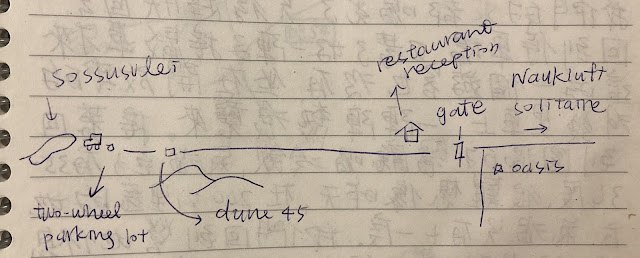 sossusvlei
restaurant
reception
Naukluft
solitaire
gate
oasis
two-wheel
parking lot
dune 45